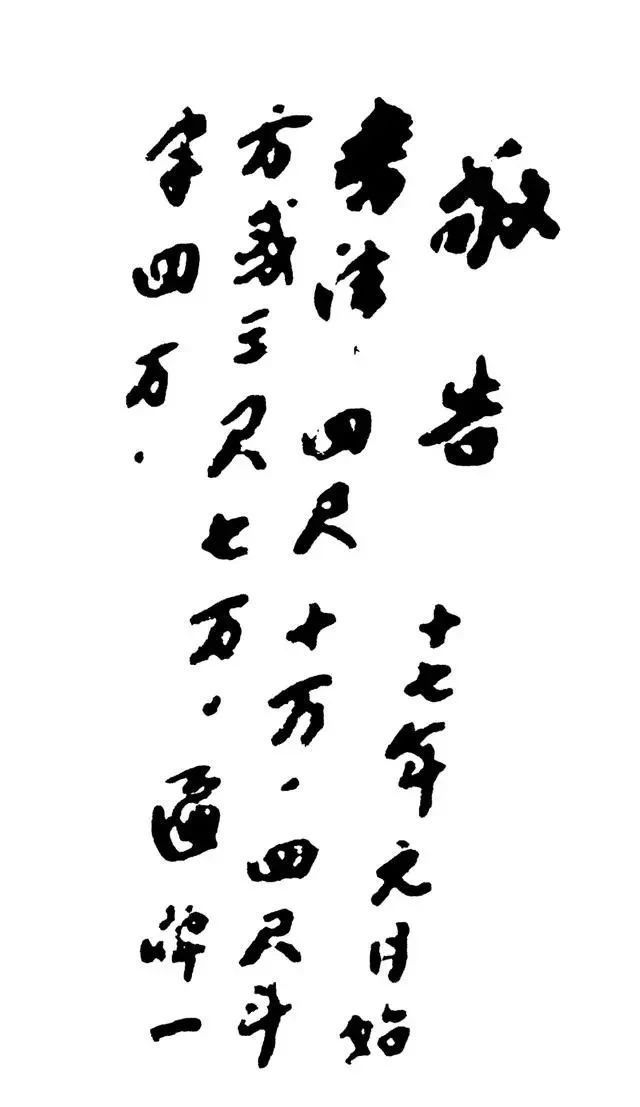 敬告
十七年元月始
书法.四尺十万.四尺斗
方或三尺七万.匾牌一
字四万.